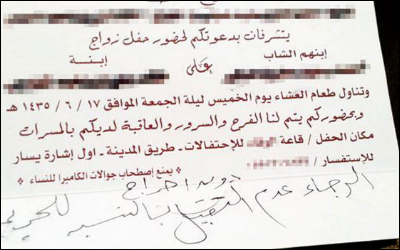 يتشرفان بدعوتكم لحضور حفل زواج
إبنهم الشاب إبنة
على
وتناول طعام العشاء يوم الخميس ليلة الجمعة الموافق ١٧ / ٦ / ١٤٣٥ هـ
وبحضوركم يتم لنا الفرح والسرور والعاقبة لديكم بالمسرات
مكان الحفل / قاعة للإحتفالات - طريق المدينة - اول إشارة يسار
للإستفسار / * يمنع إصطحاب جوالات الكاميرا للنساء *
دون احراج
الرجاء عدم التقبيل بالنسبه للحريم